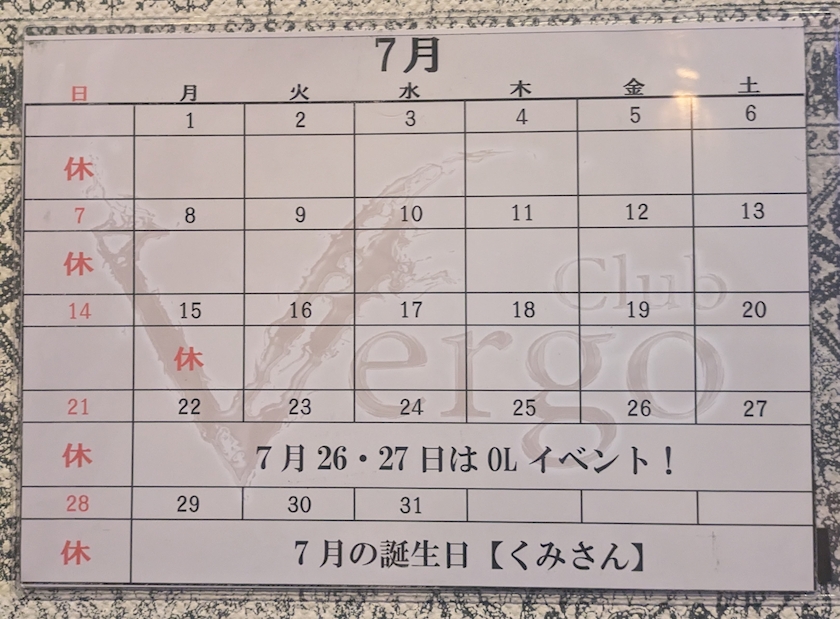 7月
日 月 火 水 木 金 土
1 2 3 4 5 6
休
7 8 9 10 11 12 13
休
14 15 16 17 18 19 20
休
21 22 23 24 25 26 27
休 7月26・27日はOLイベント！
28 29 30 31
休 7月の誕生日【くみさん】
Club
Vergo